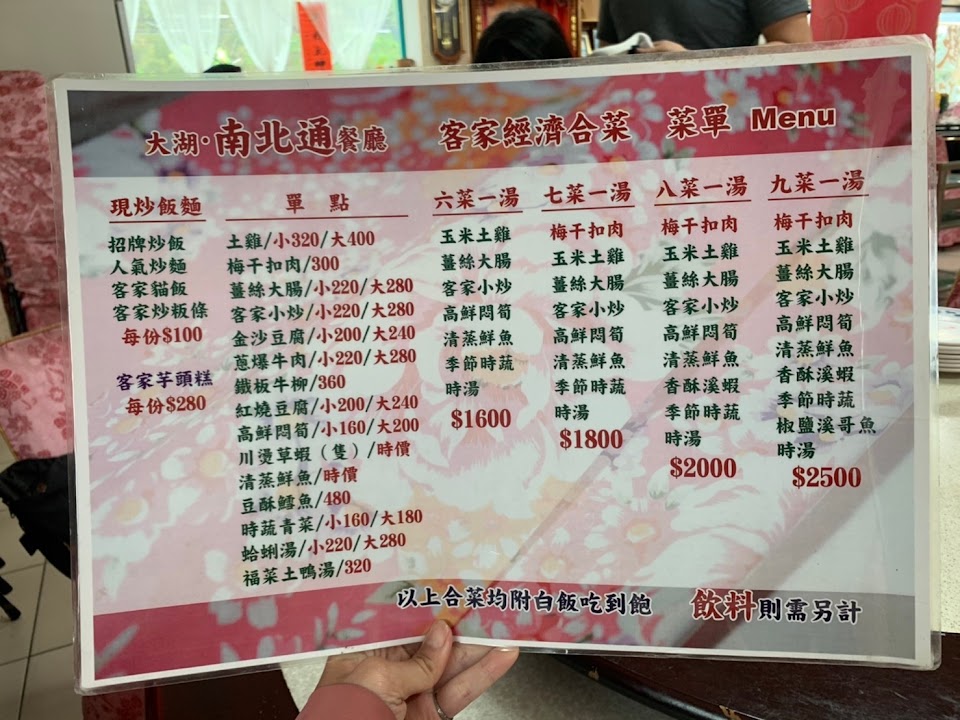 大湖·南北通餐廳 客家經濟合菜 菜單 Menu
現炒飯麵
招牌炒飯
人氣炒麵
客家貓飯
客家炒粄條
每份$100
客家芋頭糕
每份$280
單點
土雞/小320/大400
梅干扣肉/300
薑絲大腸/小220/大280
客家小炒/小220/大280
金沙豆腐/小200/大240
蔥爆牛肉/小220/大280
鐵板牛柳/360
紅燒豆腐/小200/大240
高鮮悶筍/小160/大200
川燙草蝦(隻)/時價
清蒸鮮魚/時價
豆酥鱈魚/480
時蔬青菜/小160/大180
蛤蜊湯/小220/大280
福菜土鴨湯/320
六菜一湯
玉米土雞
薑絲大腸
客家小炒
高鮮悶筍
清蒸鮮魚
季節時蔬
時湯
$1600
七菜一湯
梅干扣肉
玉米土雞
薑絲大腸
客家小炒
高鮮悶筍
清蒸鮮魚
季節時蔬
時湯
$1800
八菜一湯
梅干扣肉
玉米土雞
薑絲大腸
客家小炒
高鮮悶筍
清蒸鮮魚
香酥溪蝦
季節時蔬
時湯
$2000
九菜一湯
梅干扣肉
玉米土雞
薑絲大腸
客家小炒
高鮮悶筍
清蒸鮮魚
香酥溪蝦
季節時蔬
椒鹽溪哥魚
時湯
$2500
以上合菜均附白飯吃到飽 飲料則需另計